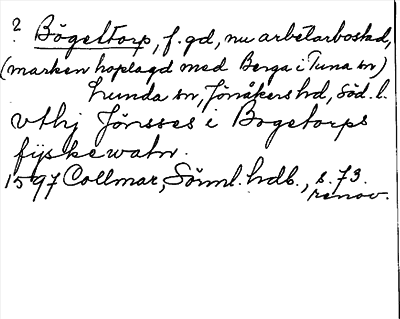 ? Bögeltorp, f. gd, nu arbetarbostad,
(marken hoplagd med Berga i Tuna sn)
Lunda sn, Jönåkers hd, Söd. l.
vthj Jönsses i Bogetorps
fijskewatn.
1597 Collmar, Sörml. hdb., s. 73.
renov.